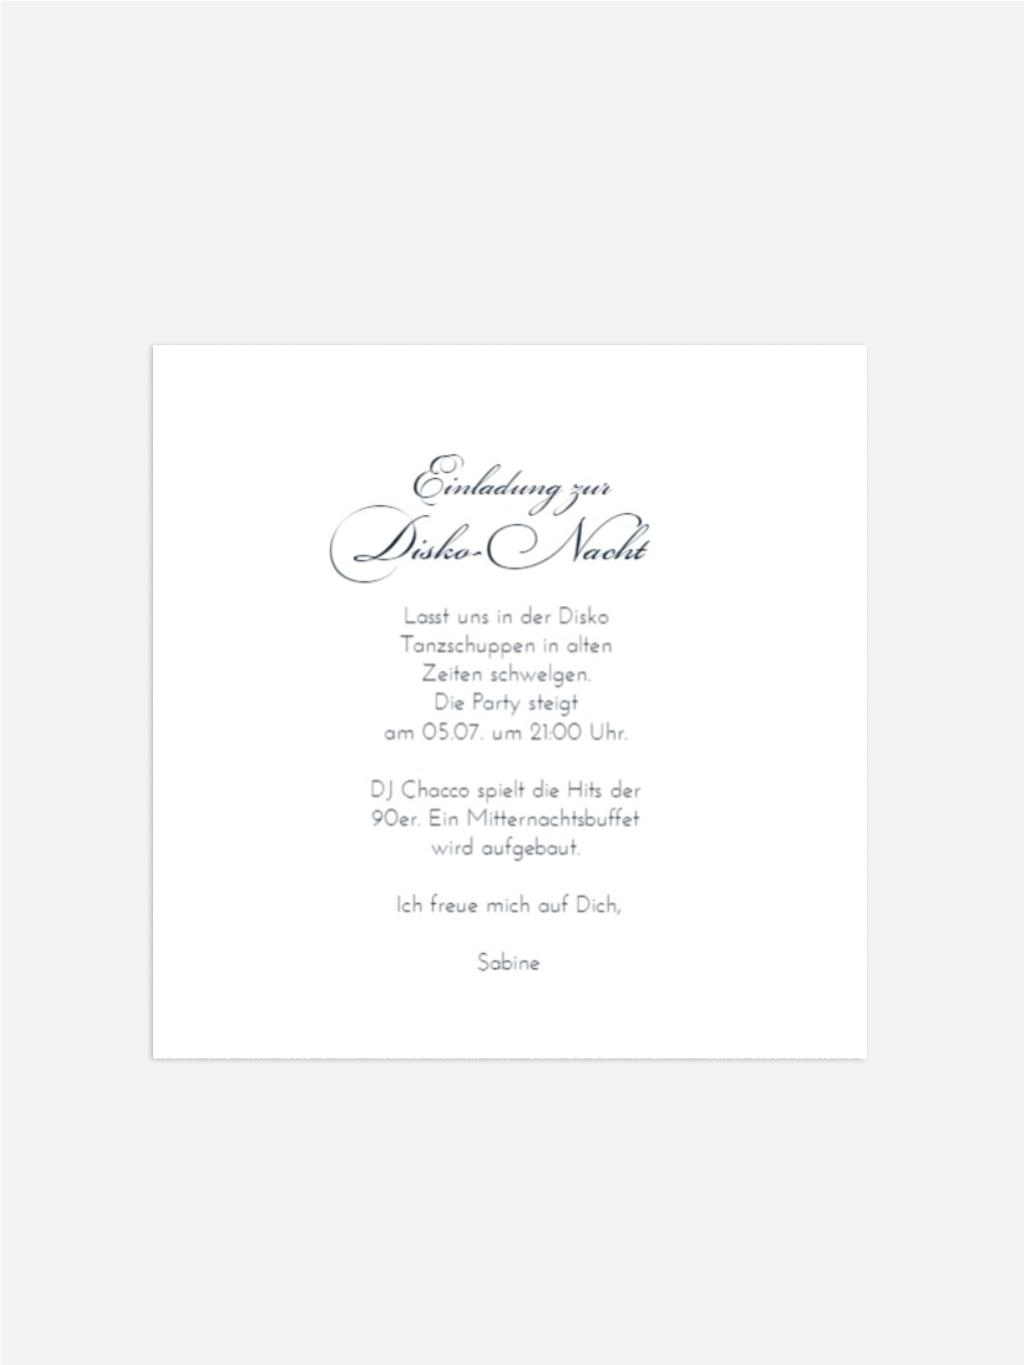 Einladung zur
Disko-Nacht
Lasst uns in der Disko
Tanzschuppen in alten
Zeiten schwelgen.
Die Party steigt
am 05.07. um 21:00 Uhr.
DJ Chacco spielt die Hits der
90er. Ein Mitternachtsbuffet
wird aufgebaut.
Ich freue mich auf Dich,
Sabine